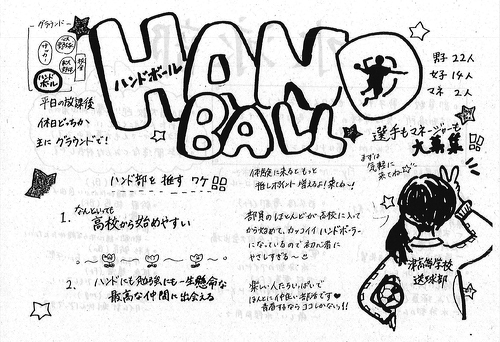 グラウンド
サッカー
ハンド
ボール
平日の放課後
休日どっちか
主にグラウンドで!
HAND
ハンドボール
BALL
男子 22人
女子 14人
マネ 2人
選手もマネージャーも
大募集!!
まずは
気軽に
来てね
ハンド部を推すワケ
1. なんといっても
高校から始めやすい
体験に来るともっと
推しポイント増えるよ!来てね〜!
部員のほとんどが高校に入って
から始めて、カッコイイハンドボーラー
になっているので初心者に
やさしすぎる〜
2. ハンドにも勉強にも一生懸命な
最高な仲間に出会える
楽しい人たちいっぱいで
ほんとに仲良い部活です♥
青春するならココしかないっ!!
津高等学校
送球部